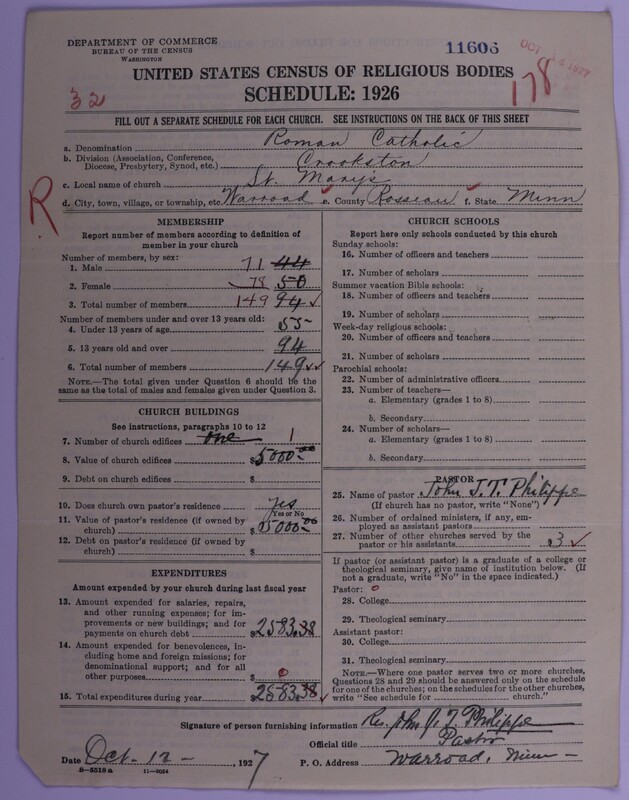 DEPARTMENT OF COMMERCE
BUREAU OF THE CENSUS
WASHINGTON
11606
OCT 1927
178
32
UNITED STATES CENSUS OF RELIGIOUS BODIES
SCHEDULE: 1926
FILL OUT A SEPARATE SCHEDULE FOR EACH CHURCH. SEE INSTRUCTIONS ON THE BACK OF THIS SHEET
a. Denomination Roman Catholic
b. Division (Association, Conference, Diocese, Presbytery, Synod, etc.) Crookston
c. Local name of church St. Mary's
d. City, town, village, or township, etc. Warroad e. County Rosseau f. State Minn
R
MEMBERSHIP
Report number of members according to definition of
member in your church
Number of members, by sex:
1. Male 71 44
2. Female 78 50
3. Total number of members 149 94 ✓
Number of members under and over 13 years old:
4. Under 13 years of age 55
5. 13 years old and over 94
6. Total number of members 149 ✓✓
NOTE.—The total given under Question 6 should be the
same as the total of males and females given under Question 3.
CHURCH BUILDINGS
See instructions, paragraphs 10 to 12
7. Number of church edifices one 1
8. Value of church edifices $5000.00
9. Debt on church edifices $
10. Does church own pastor's residence yes
Yes or No
11. Value of pastor's residence (if owned by
church) $5000.00
12. Debt on pastor's residence (if owned by
church) $
EXPENDITURES
Amount expended by your church during last fiscal year
13. Amount expended for salaries, repairs,
and other running expenses; for im-
provements or new buildings; and for
payments on church debt $2583.38
14. Amount expended for benevolences, in-
cluding home and foreign missions; for
denominational support; and for all
other purposes $0
15. Total expenditures during year $2583.38 ✓
CHURCH SCHOOLS
Report here only schools conducted by this church
Sunday schools:
16. Number of officers and teachers
17. Number of scholars
Summer vacation Bible schools:
18. Number of officers and teachers
19. Number of scholars
Week-day religious schools:
20. Number of officers and teachers
21. Number of scholars
Parochial schools:
22. Number of administrative officers
23. Number of teachers—
a. Elementary (grades 1 to 8)
b. Secondary
24. Number of scholars—
a. Elementary (grades 1 to 8)
b. Secondary
PASTOR
25. Name of pastor John J. T. Philippe
(If church has no pastor, write "None")
26. Number of ordained ministers, if any, em-
ployed as assistant pastors
27. Number of other churches served by the
pastor or his assistants 3 ✓
If pastor (or assistant pastor) is a graduate of a college or
theological seminary, give name of institution below. (If
not a graduate, write "No" in the space indicated.)
Pastor: 0
28. College
29. Theological seminary
Assistant pastor:
30. College
31. Theological seminary
NOTE.—Where one pastor serves two or more churches,
Questions 28 and 29 should be answered only on the schedule
for one of the churches; on the schedules for the other churches,
write "See schedule for church."
Signature of person furnishing information Rev. John J. T. Philippe
Official title Pastor
Date Oct. 12 - , 1927 P. O. Address Warroad, Minn -
8-5518a 11-9024